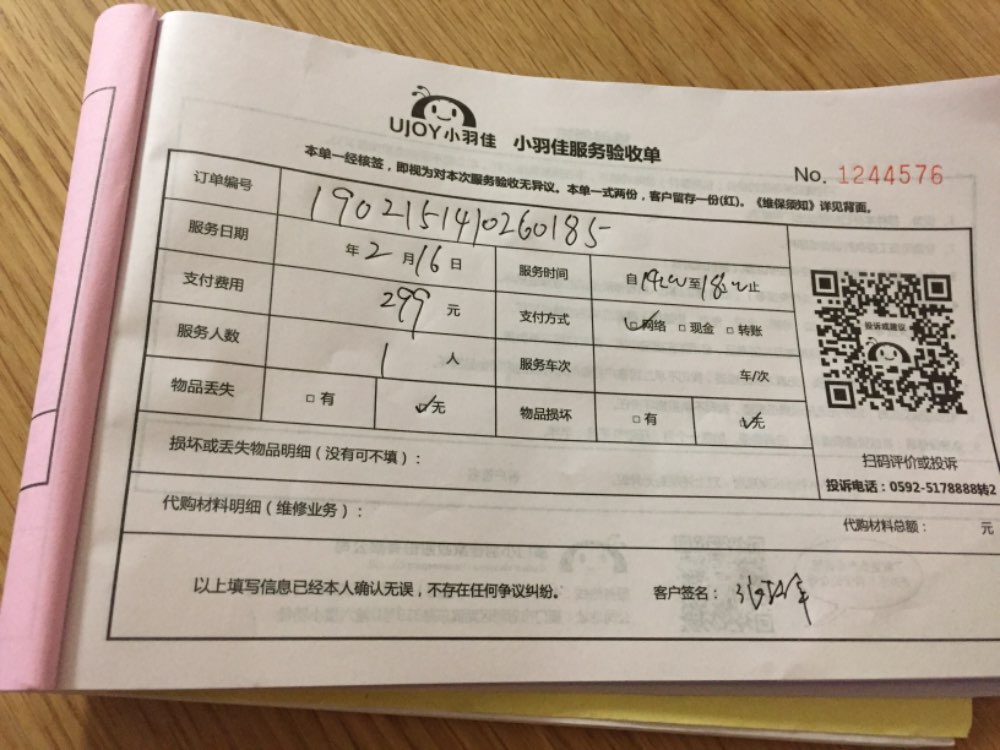 UJOY小羽佳 小羽佳服务验收单
No. 1244576
本单一经核签，即视为对本次服务验收无异议。本单一式两份，客户留存一份(红)。《维保须知》详见背面。
订单编号 190215141026018​5
服务日期 年2月16日 服务时间 自 至 止
支付费用 299 元 支付方式 ☑网络 □现金 □转账
服务人数 1 人 服务车次 车/次
物品丢失 □有 ☑无 物品损坏 □有 ☑无
投诉或建议
扫码评价或投诉
投诉电话：0592-5178888转2
损坏或丢失物品明细（没有可不填）：
代购材料明细（维修业务）： 代购材料总额： 元
以上填写信息已经本人确认无误，不存在任何争议纠纷。 客户签名：